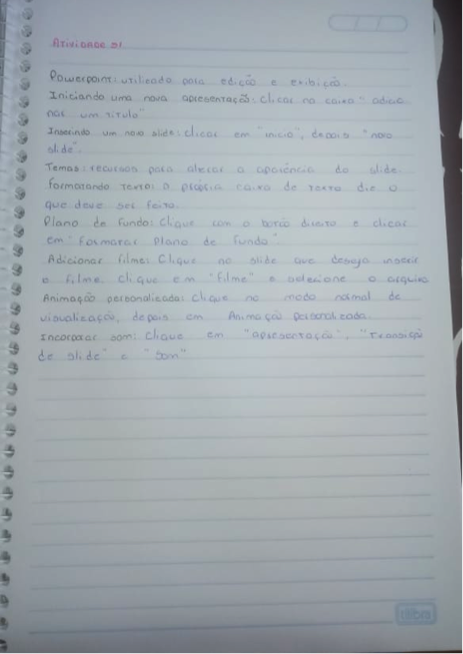 Atividade 01
Powerpoint: utilizado para edição e exibição.
Iniciando uma nova apresentação: Clicar na caixa "adicio
nar um título"
Inserindo um novo slide: clicar em "início", depois "novo
slide".
Temas: recursos para alterar a aparência do slide.
Formatando texto: a própria caixa de texto diz o
que deve ser feito.
Plano de fundo: Clique com o botão direito e clicar
em "Formatar Plano de fundo".
Adicionar filme: Clique no slide que deseja inserir
o filme. Clique em "filme" e selecione o arquivo
Animação personalizada: Clique no modo normal de
visualização, depois em Animação personalizada.
Incorporar som: Clique em "apresentação", "Transição
de slide" e "Som"
tilibra